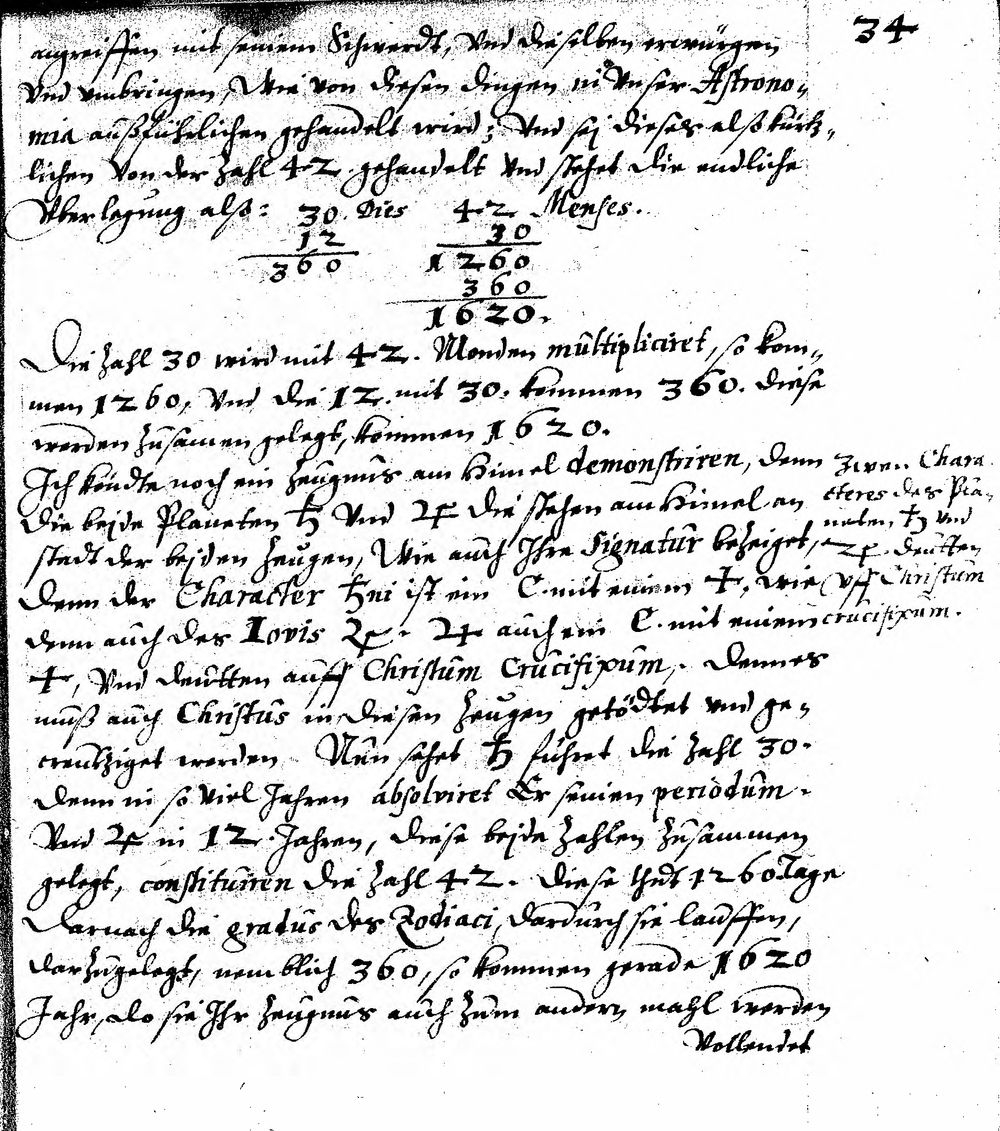 34
angreiffen mit seinem Schwerdt, Vnd dieselben erwürgen
Vnd vmbringen, Wie von diesen dingen in Vnser Astrono-
mia außführlichen gehandelt wird; Vnd sej dieses alß kürtz-
lichen Von der Zahl 42 gehandelt Vnd stehet die endliche
Vberlegung alß: 30. Dies 42 Menses.
12 30
360 1260
360
1620.
Die Zahl 30 wird mit 42. Monden multipliciret, so kom-
men 1260, Vnd die 12. mit 30. kommen 360. diese
werden zusamen gelegt, kommen 1620.
Ich köndte noch ein Zeugnus am Himel demonstriren, denn
die bejde Planeten ♄ Vnd ♃ die stehen am Himel an
stadt der bejden Zeugen, Wie auch Ihre Signatur bezeiget,
denn der Character ♄ni ist ein C. mit einem +, wie
denn auch des Iovis ♃. ♃ auch ein C. mit einem
+, Vnd deutten auff Christum Crucifixum, denn es
muß auch Christus in diesen Zeugen getödtet vnd ge-
creutziget werden Nun sehet ♄ führet die Zahl 30.
denn in so viel Jahren absolviret Er seinen periodum.
Vnd ♃ in 12 Jahren, diese bejde Zahlen Zusammen
gelegt, constituiren die Zahl 42. diese thut 1260 Tage
darnach die gradus des Zodiaci, dardurch sie lauffen,
darzugelegt, nemblich 360, so kommen gerade 1620
Jahr, do sie Ihr Zeugnus auch Zum andern mahl werden
Vollendet
Zwen Chara
cteres des Pla-
neten, ♄ vnd
♃. deutten
vff Christum
crucifixum.